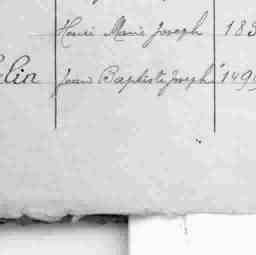 Henri Marie Joseph 183
lin Jean Baptiste Joseph 149